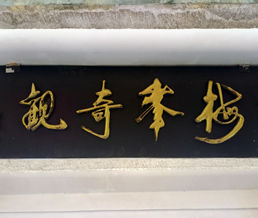 梅峯奇觀